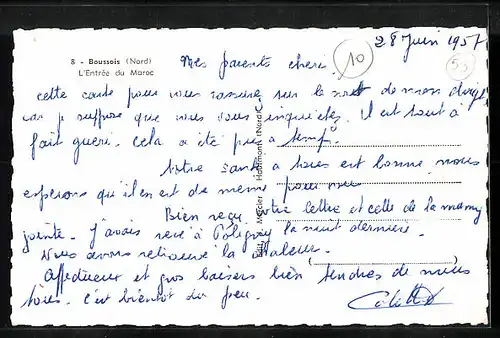 8 - Boussois (Nord)
L'Entrée du Maroc
28 Juin 1957
10
Mes parents cheri
cette carte pour vous rassurer sur le de mon
car je suppose que vous vous inquiétez. Il est tout à
fait guéri. cela a été pris a temps
Notre santé a tous est bonne nous
esperons qu'il en est de meme pour vous
Bien reçu votre lettre et celle de la mamy
jointe. J'avais revé à Poligny la nuit derniere.
Nous avons retrouvé la chaleur.
Affectueux et gros baisers bien tendres de nous
tous. C'est bientôt du feu.
Edit. Mercier Hautmont (Nord)